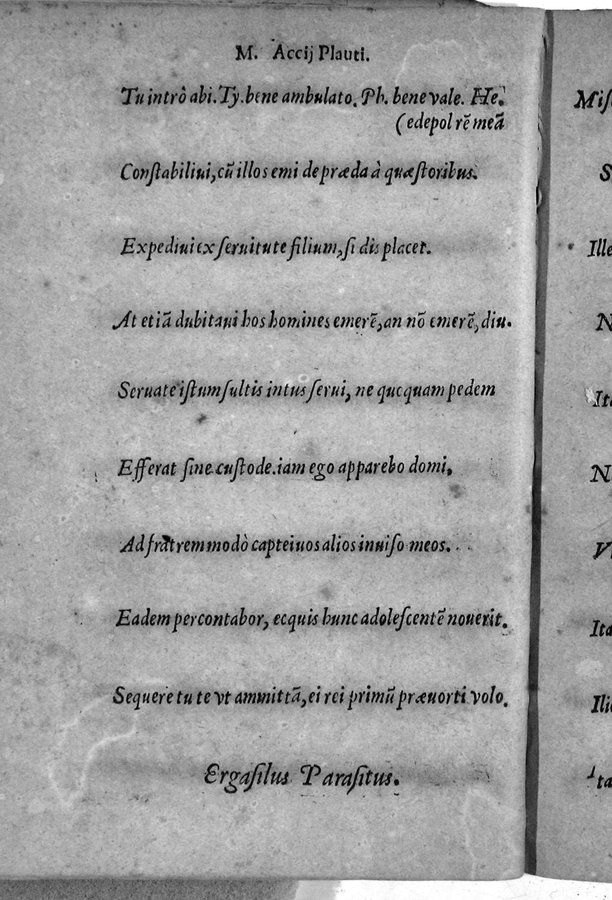 M. Accij Plauti.
Tu intrò abi. Ty. bene ambulato. Ph. bene vale. He.
(edepol rē meā
Conſtabiliui, cū illos emi de præda à quæſtoribus.
Expediui ex ſeruitute filium, ſi dis placet.
At etiā dubitaui hos homines emerē, an nō emerē, diu.
Seruate iſtum ſultis intus ſerui, ne quoquam pedem
Efferat ſine cuſtode. iam ego apparebo domi,
Ad fratrem modò capteiuos alios inuiſo meos.
Eadem percontabor, ecquis hunc adoleſcentē nouerit.
Sequere tu te vt ammittā, ei rei primū præuorti volo.
Ergaſilus Paraſitus.
Ille